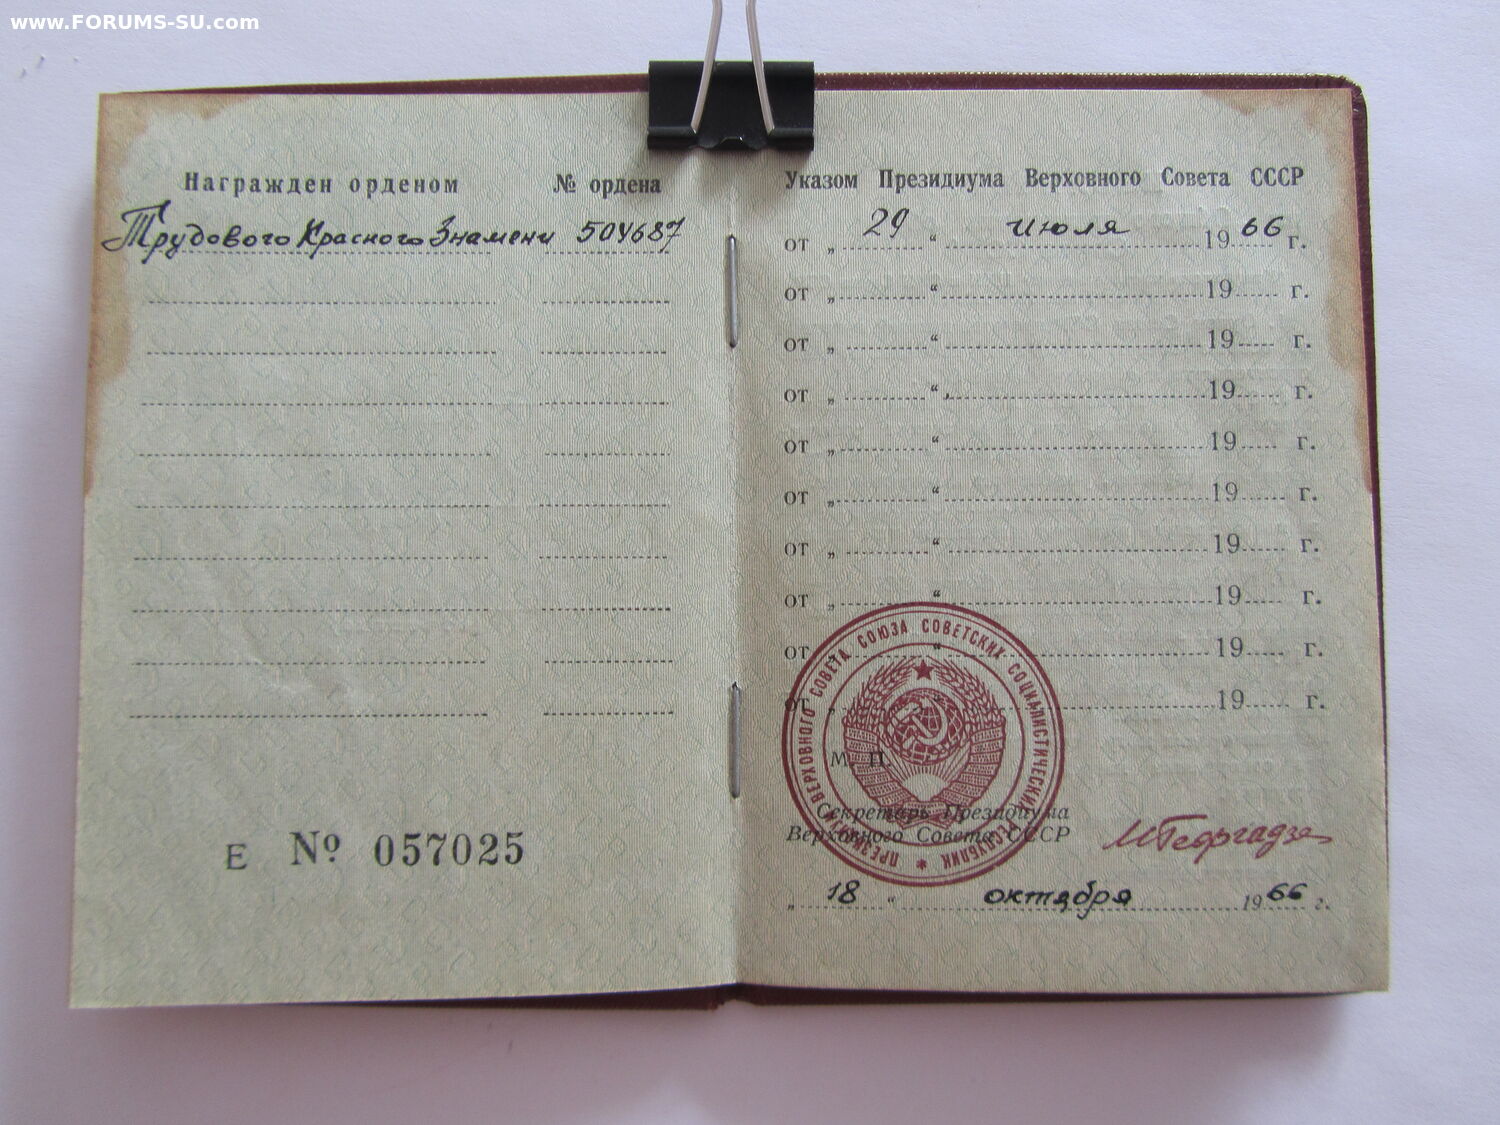 www.FORUMS-SU.com
Награжден орденом № ордена
Трудового Красного Знамени 504687
Е № 057025
Указом Президиума Верховного Совета СССР
от „ 29 “ июля 1966 г.
от „ “ 19 г.
от „ “ 19 г.
от „ “ 19 г.
от „ “ 19 г.
от „ “ 19 г.
от „ “ 19 г.
от „ “ 19 г.
от „ “ 19 г.
от „ “ 19 г.
М. П.
ПРЕЗИДИУМ ВЕРХОВНОГО СОВЕТА СОЮЗА СОВЕТСКИХ СОЦИАЛИСТИЧЕСКИХ РЕСПУБЛИК *
Секретарь Президиума
Верховного Совета СССР
МГеоргадзе
„ 18 “ октября 1966 г.